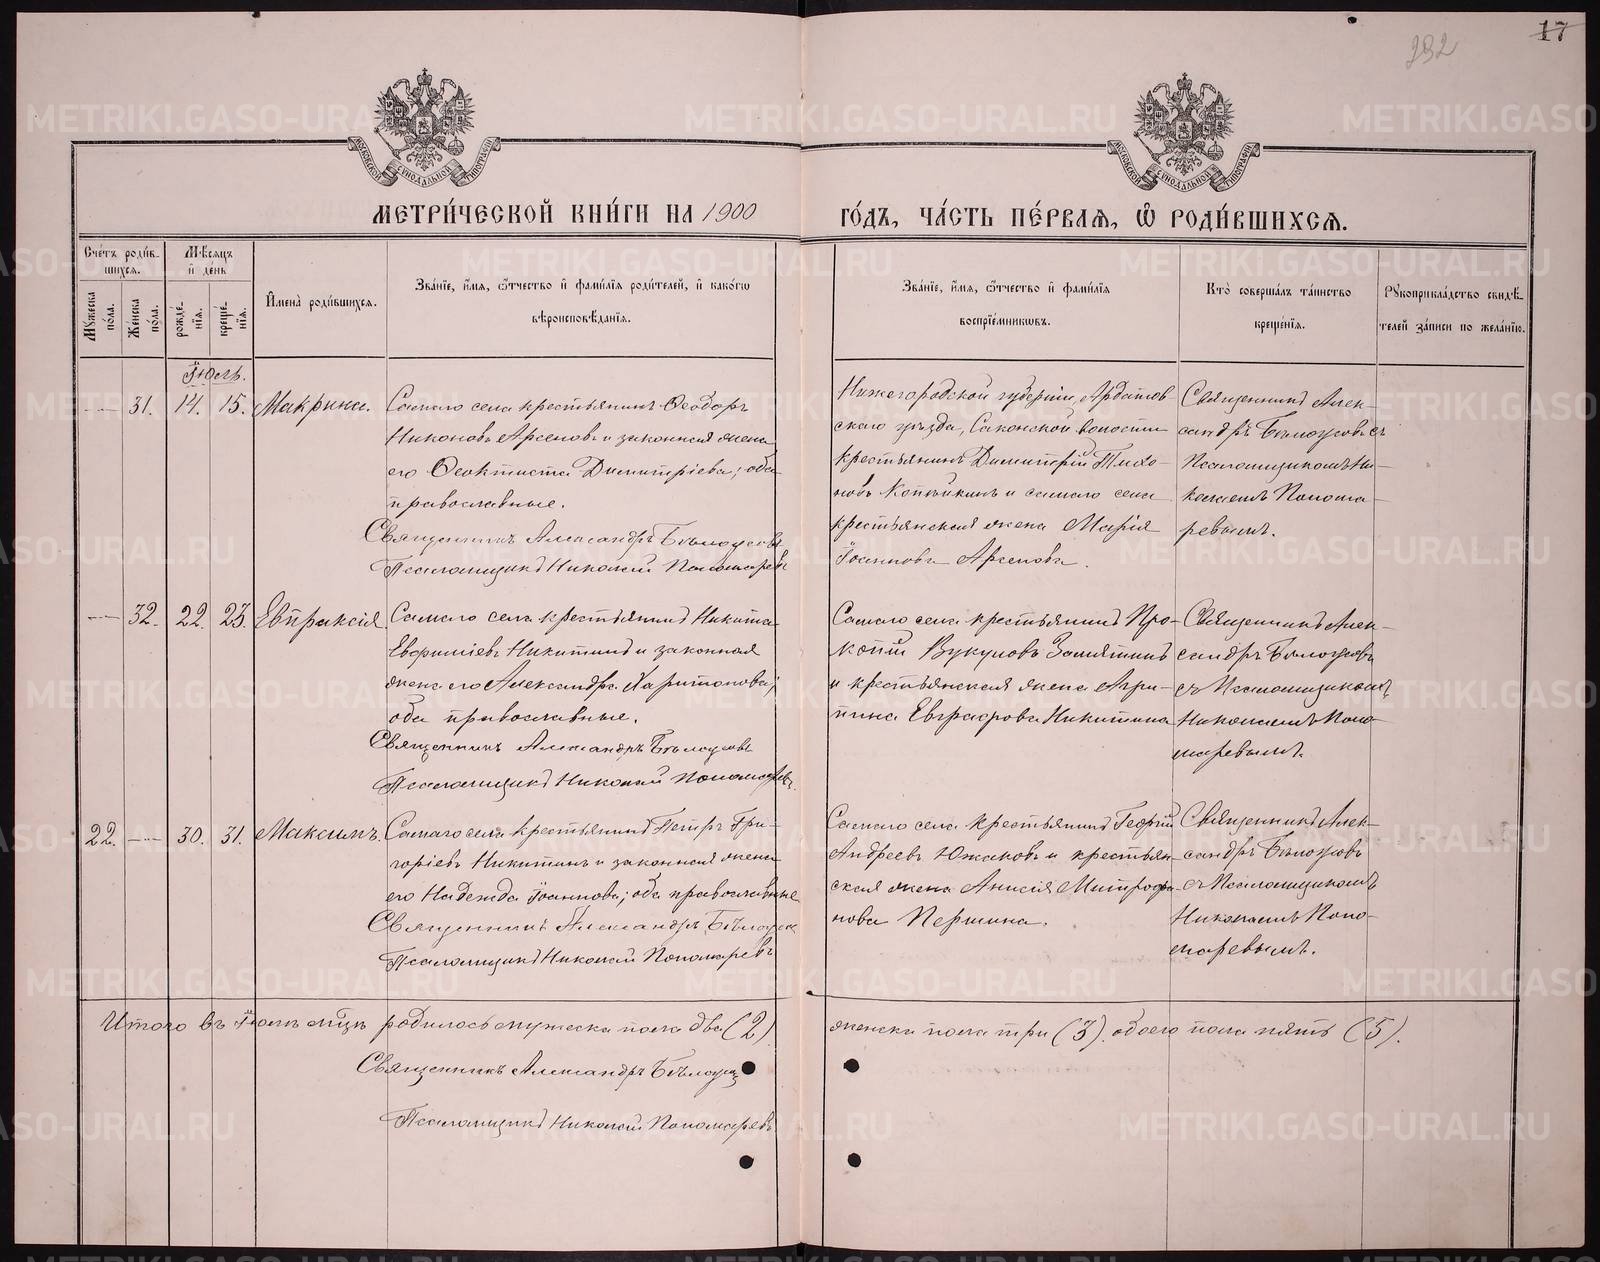 17
292
МЕТРИ́ЧЕСКОЙ КНИ́ГИ НА 1900
ГО́ДЪ, ЧА́СТЬ ПЕ́РВАѦ, Ѽ РОДИ́ВШИХСѦ.
Сче́тъ роди́в-
шихсѧ.
Мꙋ́жеска по́ла.
Же́нска по́ла.
Мѣ́сѧцъ
и҆ де́нь
рожде́-
нїѧ.
креще́-
нїѧ.
И҆мена̀ роди́вшихсѧ.
Зва́нїе, и҆́мѧ, ѻ҆́тчество и҆ фами́лїѧ роди́телей, и҆ како́гѡ
вѣроисповѣ́данїѧ.
Зва́нїе, и҆́мѧ, ѻ҆́тчество и҆ фами́лїѧ
воспрїе́мникѡвъ.
Кто̀ соверша́лъ та́инство
креще́нїѧ.
Рꙋкоприкла́дство свидѣ́-
телей за́писи по жела́нїю.
Іюль.
31. 14. 15. Макрина.
Самаго села крестьянинъ Ѳеодоръ
Никоновъ Арсеновъ и законная жена
его Ѳеоктиста Димитріева; оба
православные.
Священникъ Александръ Бѣлоусовъ
Псаломщикъ Николай Пономаревъ
Нижегородской губерніи, Ардатов-
скаго уѣзда, Саконской волости
крестьянинъ Димитрій Тихо-
новъ Копѣйкинъ и самаго села
крестьянская жена Марія
Іоаннова Арсенова.
Священникъ Алек-
сандръ Бѣлоусовъ съ
Псаломщикомъ Ни-
колаемъ Понома-
ревымъ.
32. 22. 23. Евпраксія.
Самаго села крестьянинъ Никита
Евфиміевъ Никитинъ и законная
жена его Александра Харитонова;
оба православные.
Священникъ Александръ Бѣлоусовъ
Псаломщикъ Николай Пономаревъ.
Самаго села крестьянинъ Про-
копій Вукуловъ Замятинъ
и крестьянская жена Агри-
пина Евграфова Никитина
Священникъ Алек-
сандръ Бѣлоусовъ
съ Псаломщикомъ
Николаемъ Поно-
маревымъ.
22. 30. 31. Максимъ.
Самаго села крестьянинъ Петръ Гри-
горіевъ Никитинъ и законная жена
его Надежда Іоаннова; оба православные
Священникъ Александръ Бѣлоусов
Псаломщикъ Николай Пономаревъ
Самаго села крестьянинъ Георгій
Андреевъ Южаковъ и крестьян-
ская жена Анисія Митрофа-
нова Першина.
Священникъ Алек-
сандръ Бѣлоусовъ
съ Псаломщикомъ
Николаемъ Поно-
маревымъ.
Итого въ Іюлѣ мѣцѣ родилось мужеска пола два (2)
женска пола три (3). обоего пола пять (5).
Священникъ Александръ Бѣлоусов
Псаломщикъ Николай Пономаревъ.
METRIKI.GASO-URAL.RU